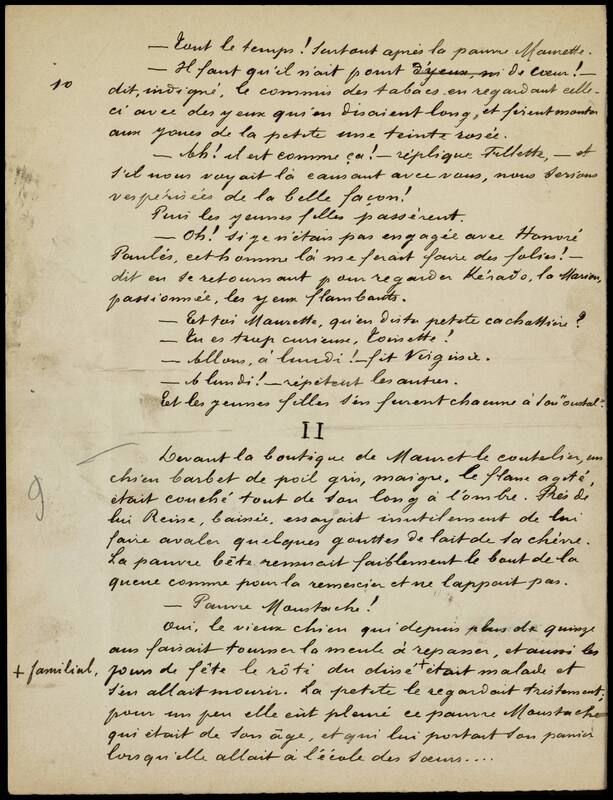 — Tout le temps! Surtout après la pauvre Maurette.
— Il faut qu'il n'ait point d'yeux, ni de cœur! —
10
dit, indigné, le commis des tabacs en regardant celle-
ci avec des yeux qu'en disaient long, et firent monter
aux joues de la petite une teinte rosée.
— Ah! il est comme ça! — réplique Fillette, — et
s'il nous voyait là causant avec vous, nous serions
vespérisées de la belle façon!
Puis les jeunes filles passèrent.
— Oh! si je n'étais pas engagée avec Honoré
Paulés, cet homme là me ferait faire des folies! —
dit en se retournant pour regarder Kérado, la Marion,
passionnée, les yeux flambants.
— Et toi Maurette, qu'en dis tu petite cachottière?
— Tu es trop curieuse, Toinette!
— Allons, à lundi! — fit Virginie.
— A lundi! — répètent les autres.
Et les jeunes filles s'en furent chacune à son "oustal".
II
Devant la boutique de Mauret le coutelier, un
chien barbet de poil gris, maigre, le flanc agité,
9
était couché tout de son long à l'ombre. Près de
lui Reine, baissée, essayait inutilement de lui
faire avaler quelques gouttes de lait de sa chèvre.
La pauvre bête remuait faiblement le bout de la
queue comme pour la remercier et ne lappait pas.
— Pauvre Moustache!
Oui, le vieux chien qui depuis plus de quinze
ans faisait tourner la meule à repasser, et aussi les
+ familial,
jours de fête le rôti du dîné + était malade et
s'en allait mourir. La petite le regardait tristement;
pour un peu elle eût pleuré ce pauvre Moustache
qui était de son âge, et qui lui portait son panier
lorsqu'elle allait à l'école des sœurs....